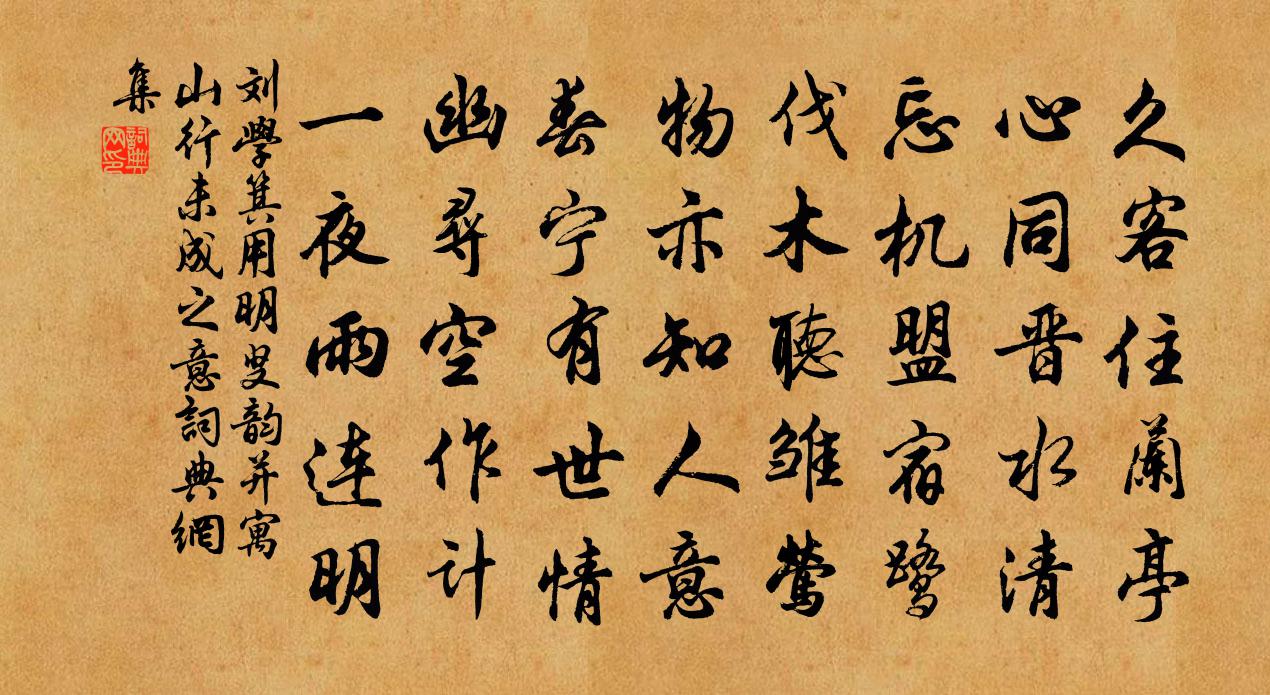 久客住蘭亭
心同晋水清
忘机盟宿鹭
伐木聽雏莺
物亦知人意
春宁有世情
幽尋空作计
一夜雨连明
刘學箕用明叟韵并寓
山行未成之意詞典網
集
詞典网印